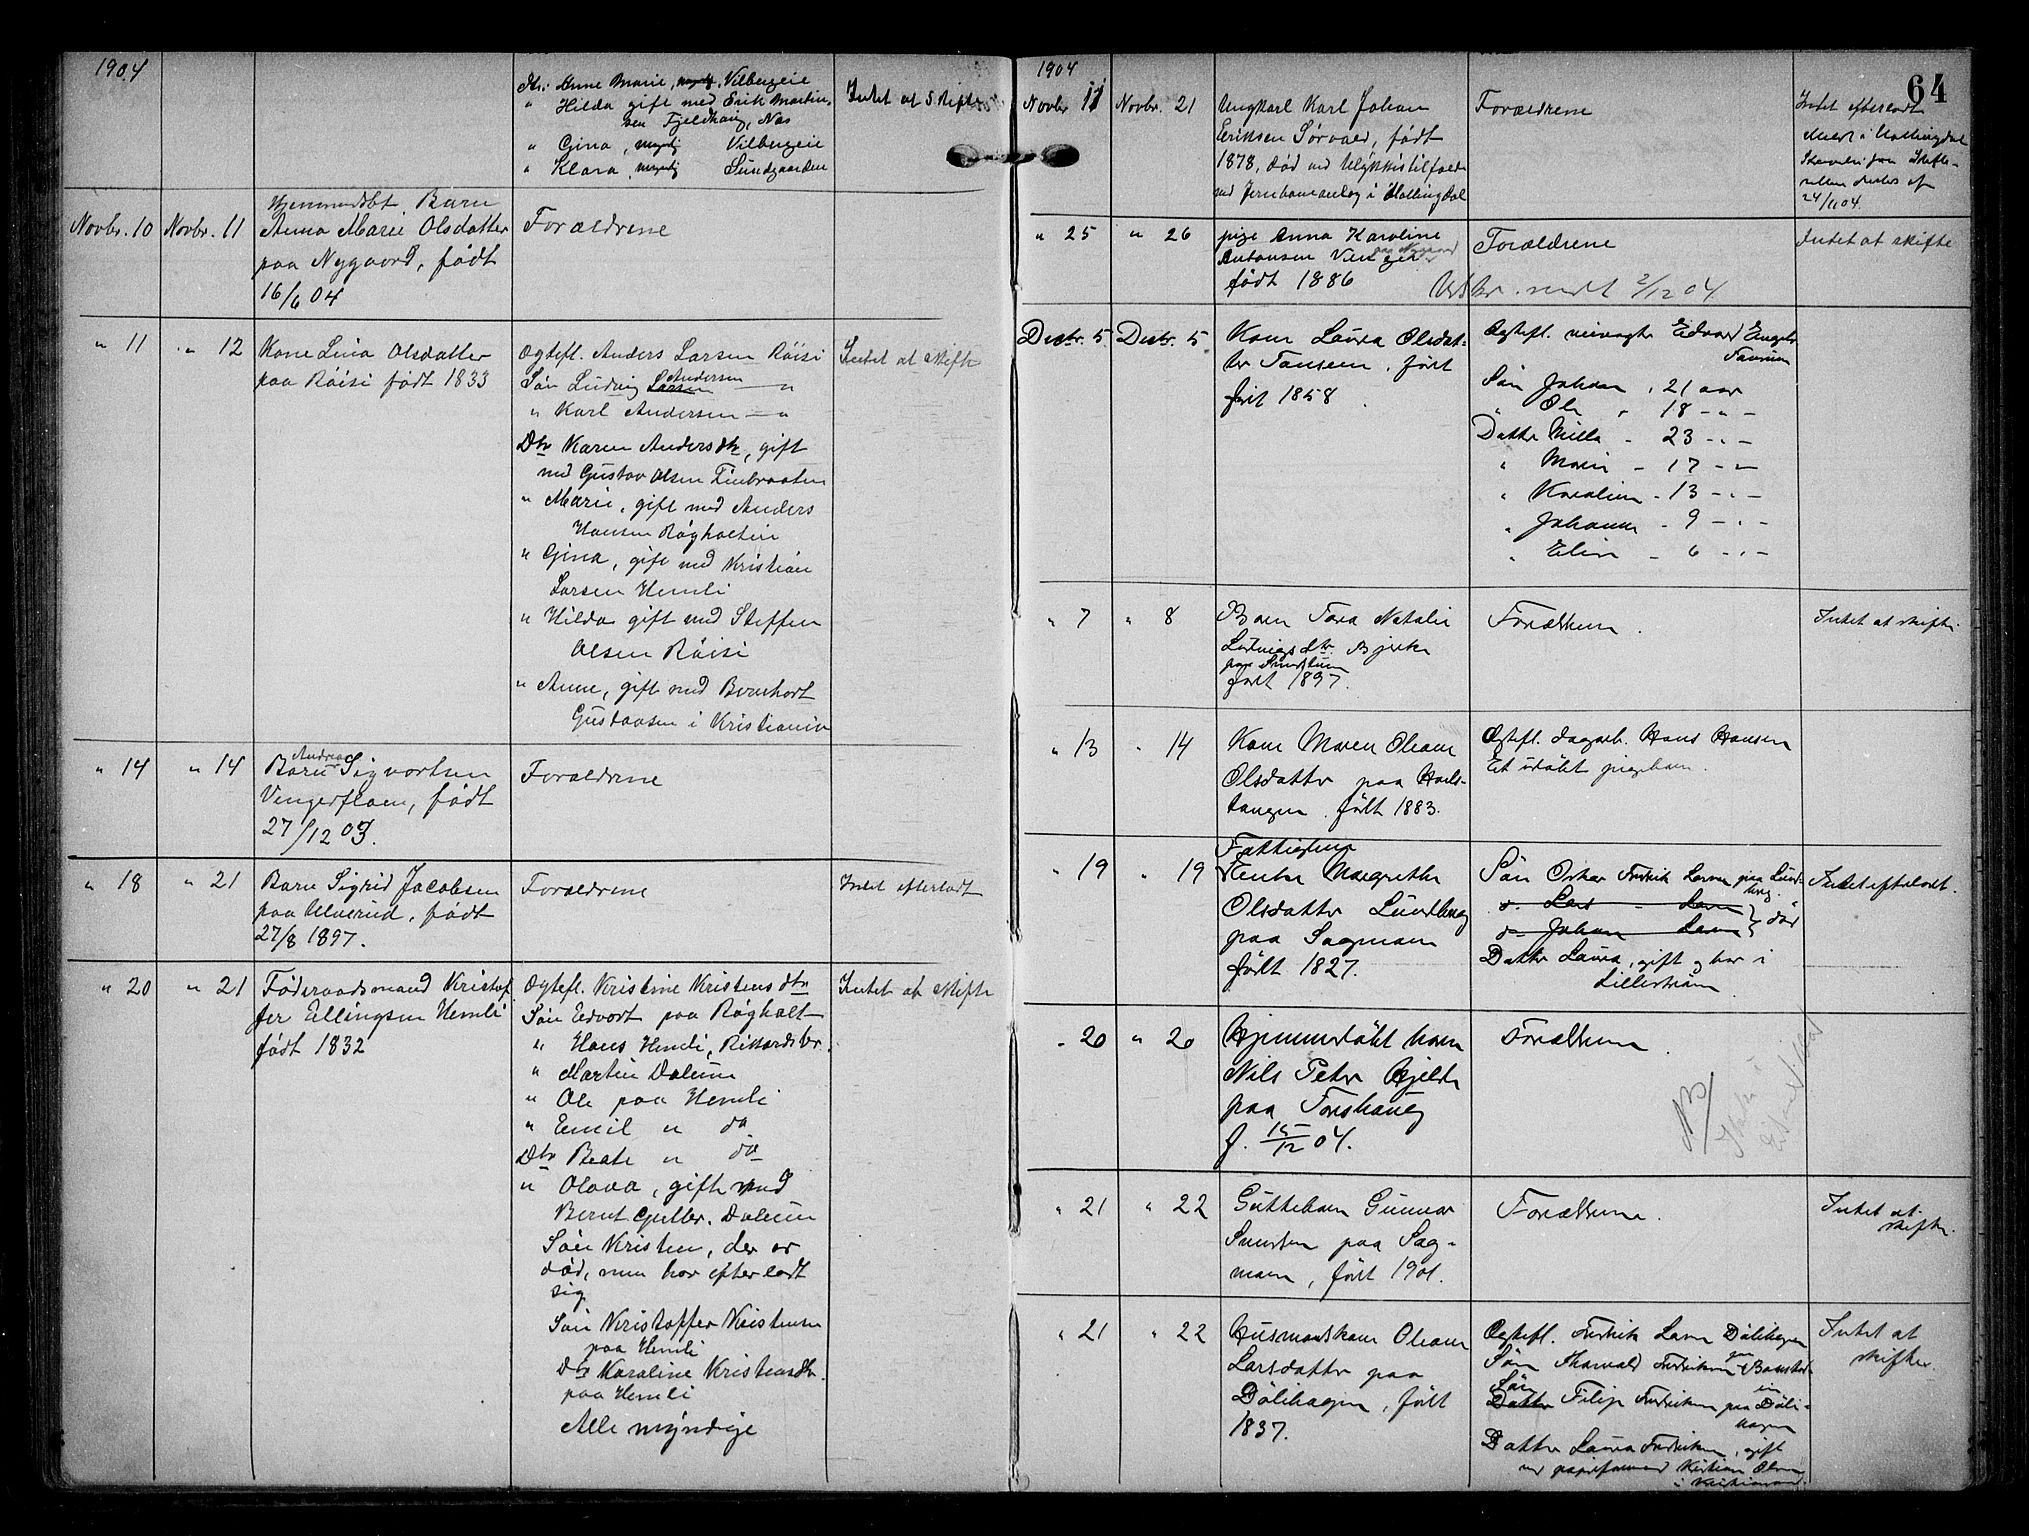 1904
Dtr. Anne Marie, myndig, Vilbergeie
" Hilda gift med Erik Martin-
sen Fjeldhaug, Næs
" Gina, myndig Vilbergeie
" Klara, myndig Sundgaarden
Intet at skifte
Novbr. 10 Novbr. 11
Hjemmedøbt Barn
Anna Marie Olsdatter
paa Nygaard, født
16/6 04
Forældrene
" 11 " 12
Kone Lina Olsdatter
paa Röisi født 1833
Ægtefl. Anders Larsen Röisi
Søn Ludvig Larsen Andersen — "
" Karl Andersen — "
Dtr Karen Andersdtr, gift
med Gustav Olsen Finbraaten
" Marie, gift med Anders
Hansen Røgholtin
" Gina, gift med Kristian
Larsen Hemli
" Hilda gift med Steffen
Olsen Röisi
" Anne, gift med Bernhart
Gustavsen i Kristiania
Intet at skifte
" 14 " 14
Andreas
Barn Sigvartsen
Vingerfloen, født
27/12 03.
Forældrene
" 18 " 21
Barn Sigrid Jacobsen
paa Ulverud, født
27/8 1897.
Forældrene
Intet efterladt
" 20 " 21
Föderaadsmand Kristof
fer Ellingsen Hemli
født 1832
Ægtefl. Kristine Kristensdtr
Søn Edvart paa Røgholt
" Hans Hemli, Rikardsbr.
" Martin Dalum
" Ole paa Hemli
" Emil " do
Dtr Beate " do
" Olava, gift med
Bernt Gulbr. Dalum
Søn Kristen, der er
död, men har efterladt
sig
Søn Kristoffer Kristensen
paa Hemli
Dtr Karoline Kristensdtr.
paa Hemli
Alle myndige
Intet at skifte
64
1904
Novbr 11 Novbr. 21
Ungkarl Karl Johan
Eriksen Sørvald, født
1878, død ved Ulykkestilfælde
ved Jernbaneanlæg i Hallingdal
Forældrene
Intet efterladt
24/11 04.
" 25 " 26
pige Anna Karoline
Antonsen Vinger
født 1886
Forældrene
Utskr. sendt 2/12 04
Intet at skifte
Decbr. 5 Decbr. 5
Kone Laura Olsdat-
ter Tansem, født
født 1858
Ægtefl. veivogter Edvard Engebr.
Tansem
Søn Johan, 21 aar
" Ole " 18 — " —
Datter Milla - 23 - " -
" Marie - 17 - " -
" Karoline - 13 - " -
" Johanne - 9 - " -
" Elin - 6 - " -
" 7 " 8
Barn Tora Natalie
Ludvigsdtr. Bjerke
paa Sundstuen
født 1897.
Forældrene.
Intet at skifte.
" 13 " 14
Kone Maren Oleane
Olsdatter paa Hols-
tangen. født 1883.
Ægtefl. dagarb. Hans Hansen
Et udøbt pigebarn.
" 19 " 19
Fattiglem
Enke Margrethe
Olsdatter Lundberg
paa Sagmoen
født 1827.
Søn Oskar Fredrik Larsen paa Lund-
berg
do Lars - Larsen
do Johan Larsen } död
Datter Laura, gift og bor i
Lillestrøm
Intet efterladt.
" 20 " 20
Hjemmedøbt barn
Nils Peter Hjelde
paa Forshaug
f. 15/12 04.
Forældrene.
" 21 " 22
Guttebarn Gunnar
Simensen paa Sag-
moen, født 1901.
Forældrene.
Intet at
skifte.
" 21 " 22
Husmandskone Oleane
Larsdatter paa
Dölihagen, født
1837.
Ægtefl. Fredrik Larsen Dölihagen
Søn Thorvald Fredriksen
Søn
Datter Filip Fredriksen paa Döli-
hagen
Datter Laura Fredriksen, gift
med Kristian Olsen
i Kristiansand.
Intet at
skifte.